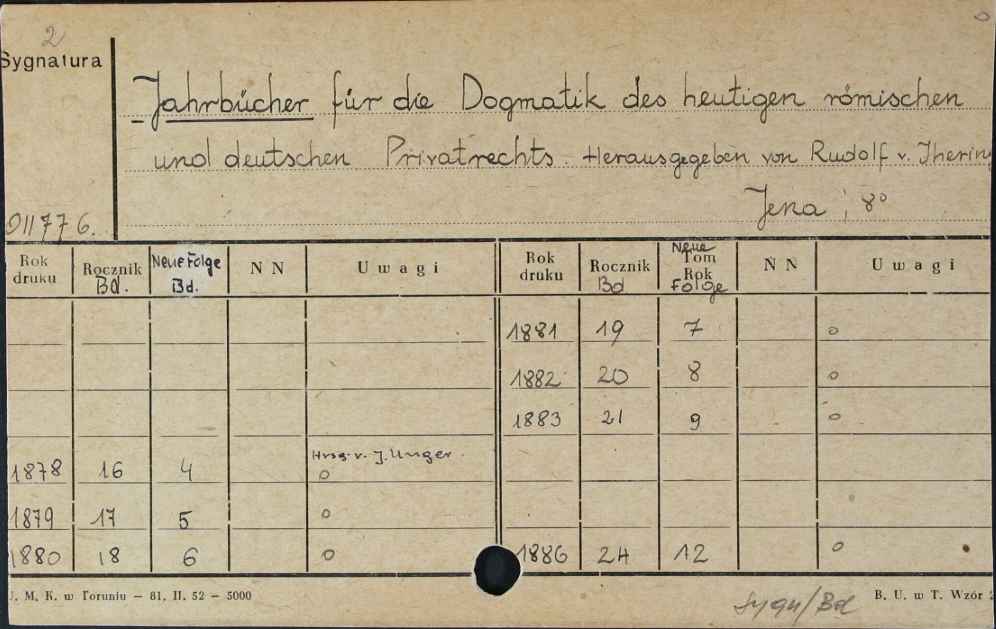 2
Sygnatura
Jahrbücher für die Dogmatik des heutigen römischen
und deutschen Privatrechts. Herausgegeben von Rudolf v. Ihering
Jena, 8°
011776.
Rok druku Rocznik Bd. Neue Folge Bd. NN Uwagi Rok druku Rocznik Bd Neue Tom Rok Folge NN Uwagi
1881 19 7 o
1882 20 8 o
1883 21 9 o
Hrsg. v. J. Unger.
1878 16 4 o
1879 17 5 o
1880 18 6 o 1886 24 12 o
J. M. K. w Toruniu — 81. II. 52 — 5000
Sygn/Bd
B. U. w T. Wzór 2